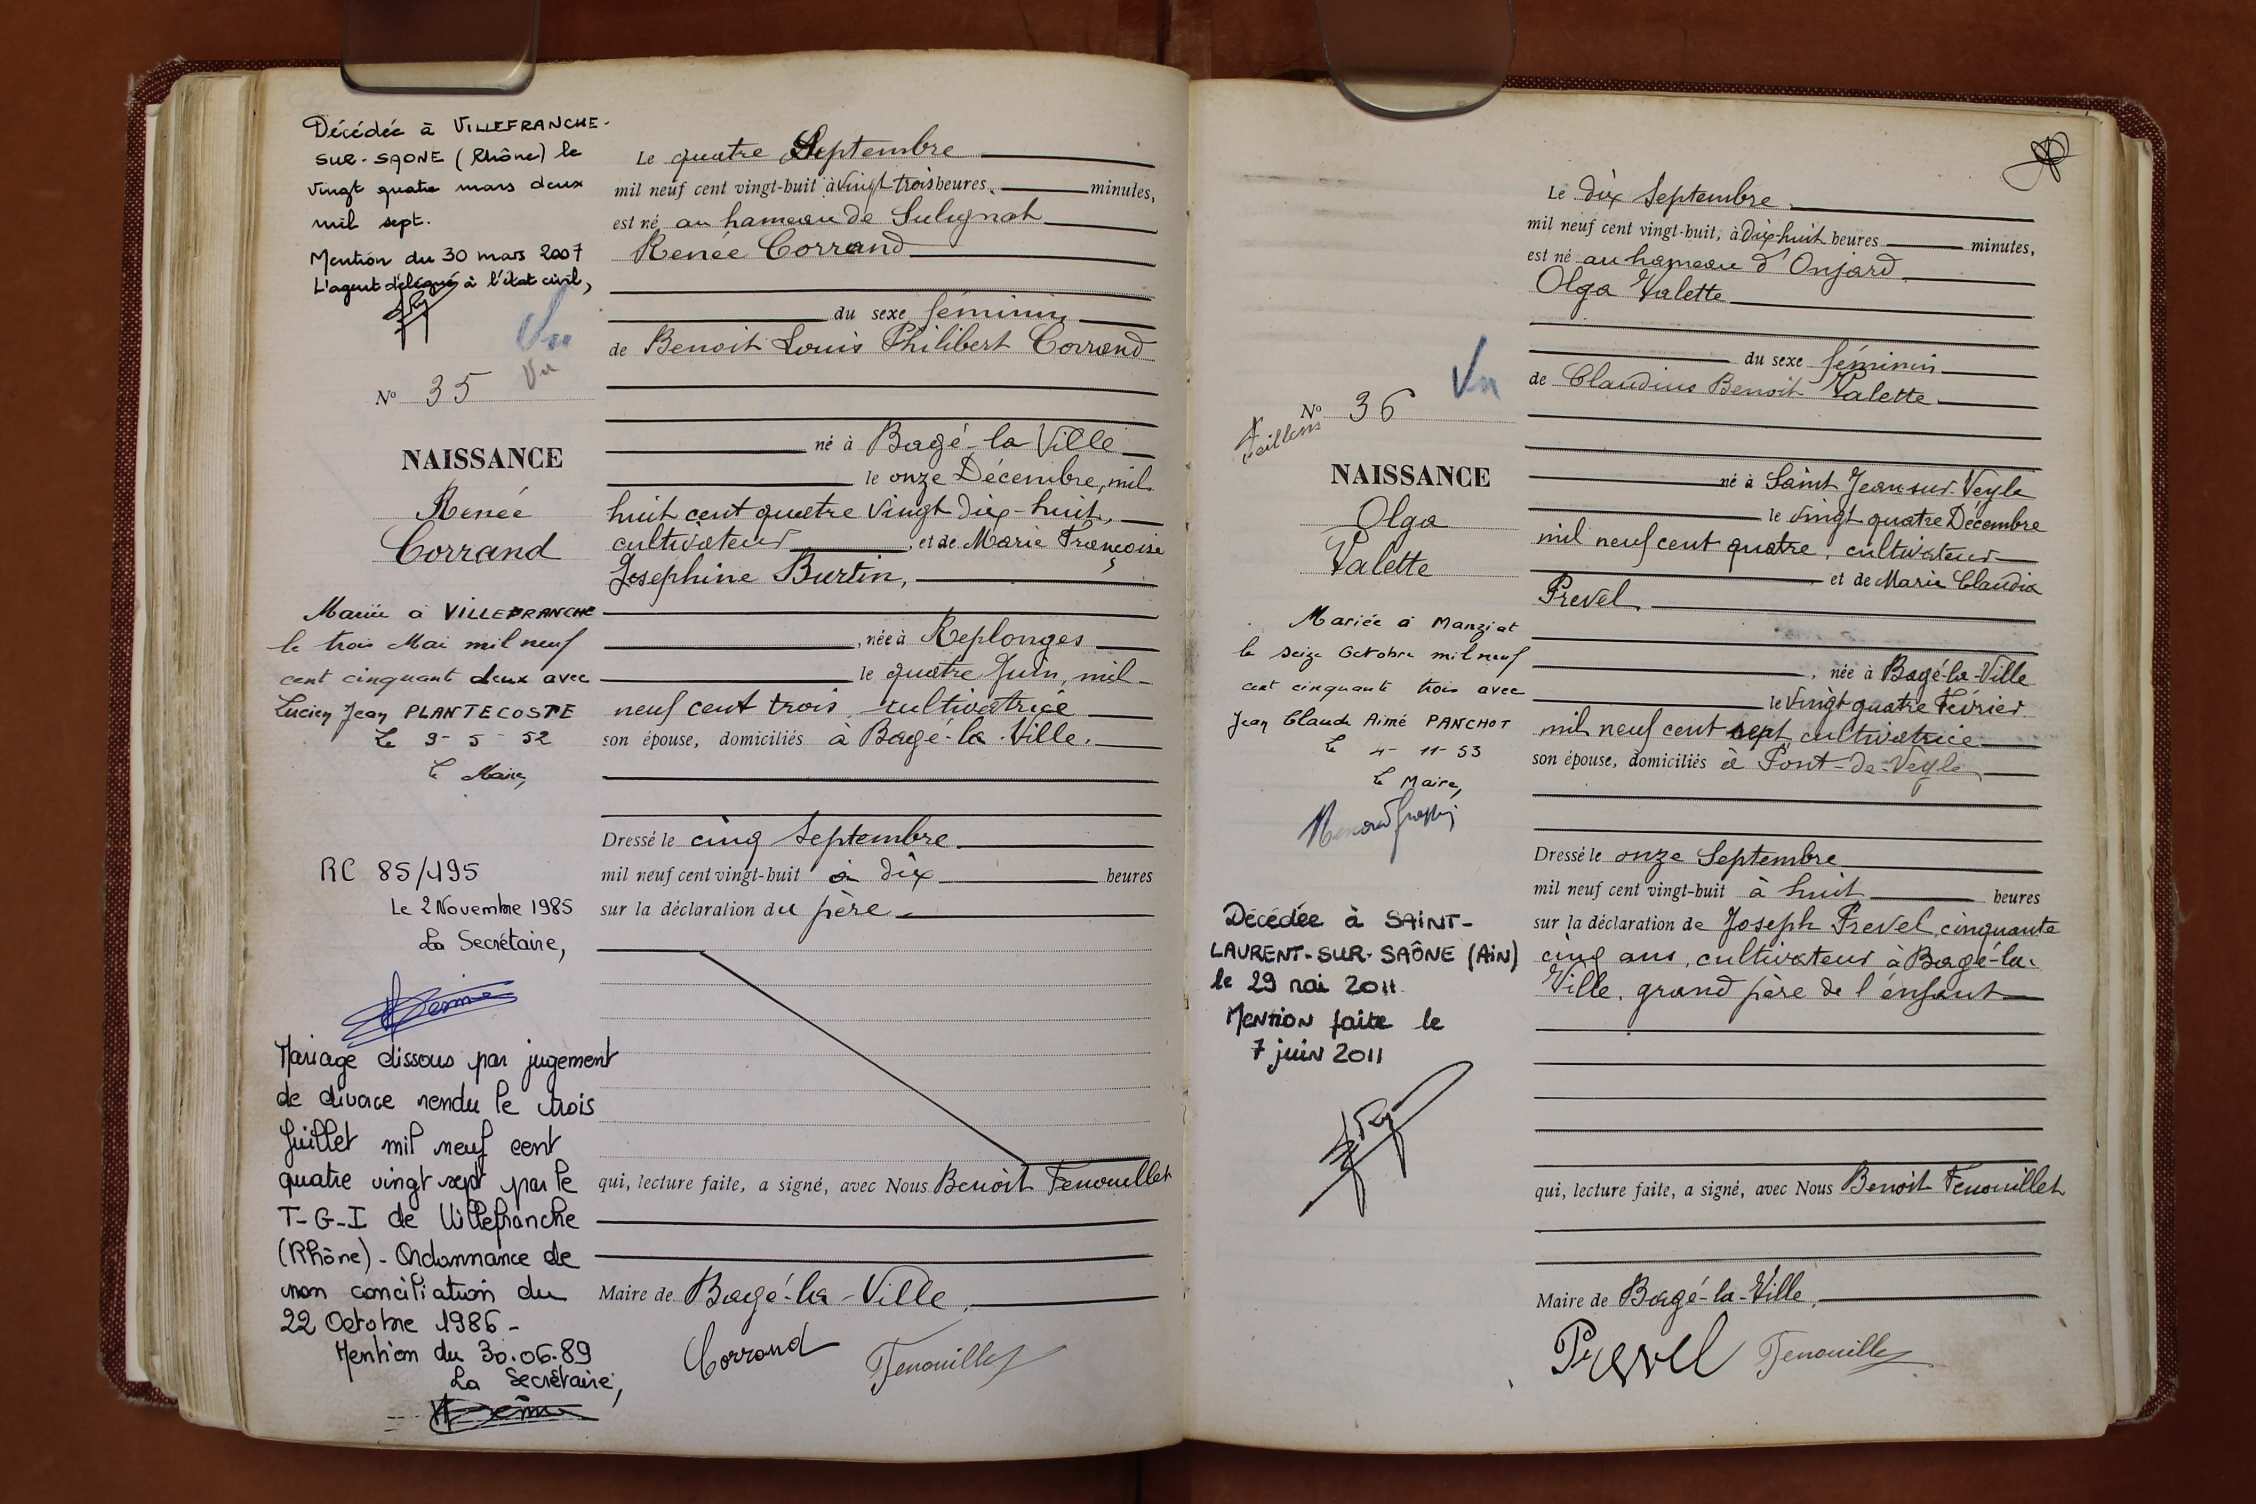 Décédée à VILLEFRANCHE-
SUR-SAONE (Rhône) le
vingt quatre mars deux
mil sept.
Mention du 30 mars 2007
L'agent délégué à l'état civil,
Vu
Vu
N° 35
NAISSANCE
Renée
Corrand
Mariée à VILLEFRANCHE
le trois Mai mil neuf
cent cinquant deux avec
Lucien Jean PLANTECOSTE
Le 9-5-52
Le Maire,
RC 85/195
Le 2 Novembre 1985
La Secrétaire,
Mariage dissous par jugement
de divorce rendu le trois
Juillet mil neuf cent
quatre vingt sept par le
T-G-I de Villefranche
(Rhône) - Ordonnance de
non conciliation du
22 Octobre 1986 -
Mention du 30.06.89
La Secrétaire,
Le quatre Septembre
mil neuf cent vingt-huit à vingt trois heures, minutes,
est né au hameau de Sulignat
Renée Corrand
du sexe féminin
de Benoit Louis Philibert Corrand
né à Bagé-la Ville
le onze Décembre, mil
huit cent quatre vingt dix-huit,
cultivateur, et de Marie Françoise
Josephine Burtin,
, née à Replonges
le quatre Juin, mil
neuf cent trois cultivatrice
son épouse, domiciliés à Bagé-la-Ville.
Dressé le cinq Septembre
mil neuf cent vingt-huit à dix heures
sur la déclaration du père
qui, lecture faite, a signé, avec Nous Benoit Fenouillet
Maire de Bagé-la-Ville,
Corrand Fenouillet
Vu
N° 36
Feillens
NAISSANCE
Olga
Valette
Mariée à Manziat
le seize Octobre mil neuf
cent cinquante trois avec
Jean Claude Aimé PANCHOT
Le 4-11-53
Le Maire,
Décédée à SAINT-
LAURENT-SUR-SAÔNE (AIN)
le 29 mai 2011
Mention faite le
7 juin 2011
Le dix Septembre
mil neuf cent vingt-huit, à dix huit heures minutes,
est né au hameau d'Onjard
Olga Valette
du sexe féminin
de Claudius Benoit Valette
né à Saint Jean sur Veyle
le vingt quatre Décembre
mil neuf cent quatre, cultivateur
et de Marie Claudia
Prevel
, née à Bagé-la-Ville
le vingt quatre Février
mil neuf cent sept cultivatrice
son épouse, domiciliés à Pont-de-Veyle
Dressé le onze Septembre
mil neuf cent vingt-huit à huit heures
sur la déclaration de Joseph Prevel, cinquante
cinq ans, cultivateur à Bagé-la-
Ville, grand père de l'enfant
qui, lecture faite, a signé, avec Nous Benoit Fenouillet
Maire de Bagé-la-Ville,
Prevel Fenouillet